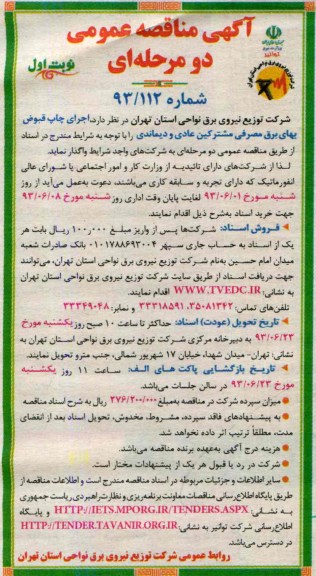 آگهی مناقصه عمومی
دو مرحله‌ای
نوبت اول
شماره ۹۳/۱۱۲
شرکت توزیع نیروی برق نواحی استان تهران در نظر دارد، اجرای چاپ قبوض
بهای برق مصرفی مشترکین عادی و دیماندی را با توجه به شرایط مندرج در اسناد
از طریق مناقصه عمومی دو مرحله‌ای به شرکت‌های واجد شرایط واگذار نماید.
لذا از شرکت‌های دارای تائیدیه از وزارت کار و امور اجتماعی یا شورای عالی
انفورماتیک که دارای تجربه و سابقه کاری می‌باشند، دعوت به‌عمل می‌آید از روز
شنبه مورخ ۹۳/۰۶/۰۱ لغایت پایان وقت اداری روز شنبه مورخ ۹۳/۰۶/۰۸
جهت خرید اسناد به‌شرح ذیل اقدام نمایند.
فروش اسناد: شرکت‌ها پس از واریز مبلغ ۱۰۰٫۰۰۰ ریال بابت هر
یک از اسناد به حساب جاری سپهر ۰۱۰۱۷۸۸۶۹۳۰۰۴ بانک صادرات شعبه
میدان امام حسین به‌نام شرکت توزیع نیروی برق نواحی استان تهران، می‌توانند
جهت دریافت اسناد از طریق سایت شرکت توزیع نیروی برق نواحی استان تهران
به نشانی: WWW.TVEDC.IR اقدام نمایند.
تلفن‌های تماس: ۳۵۰۸۱۳۴۲، ۳۳۳۱۸۵۹۱ و نمابر: ۳۳۳۴۹۰۴۸
تاریخ تحویل (عودت) اسناد: حداکثر تا ساعت ۱۰ صبح روز یکشنبه مورخ
۹۳/۰۶/۲۳ به دبیرخانه مرکزی شرکت توزیع نیروی برق نواحی استان تهران به
نشانی: تهران- میدان شهدا، خیابان ۱۷ شهریور شمالی، جنب مترو تحویل نمایند.
تاریخ بازگشایی پاکت های الف: ساعت ۱۱ روز یکشنبه
مورخ ۹۳/۰۶/۲۳ در سالن جلسات می‌باشد.
میزان سپرده شرکت در مناقصه به‌مبلغ ۲۷۶/۲۰۰/۰۰۰ ریال به شرح اسناد مناقصه
به پیشنهادهای فاقد سپرده، مشروط، مخدوش، تحویل اسناد بعد از انقضای
مدت، مطلقاً ترتیب اثر داده نخواهد شد.
هزینه درج آگهی به‌عهده برنده مناقصه می‌باشد.
شرکت در رد یا قبول هر یک از پیشنهادات مختار است.
سایر اطلاعات و جزئیات مربوطه در اسناد مناقصه مندرج است و اطلاعات مناقصه از
طریق پایگاه اطلاع‌رسانی مناقصات معاونت برنامه‌ریزی و نظارت راهبردی ریاست جمهوری
به نشانی: HTTP://IETS.MPORG.IR/TENDERS.ASPX و پایگاه
اطلاع‌رسانی شرکت توانیر به نشانی: HTTP://TENDER.TAVANIR.ORG.IR
در دسترس می‌باشد.
روابط عمومی شرکت توزیع نیروی برق نواحی استان تهران